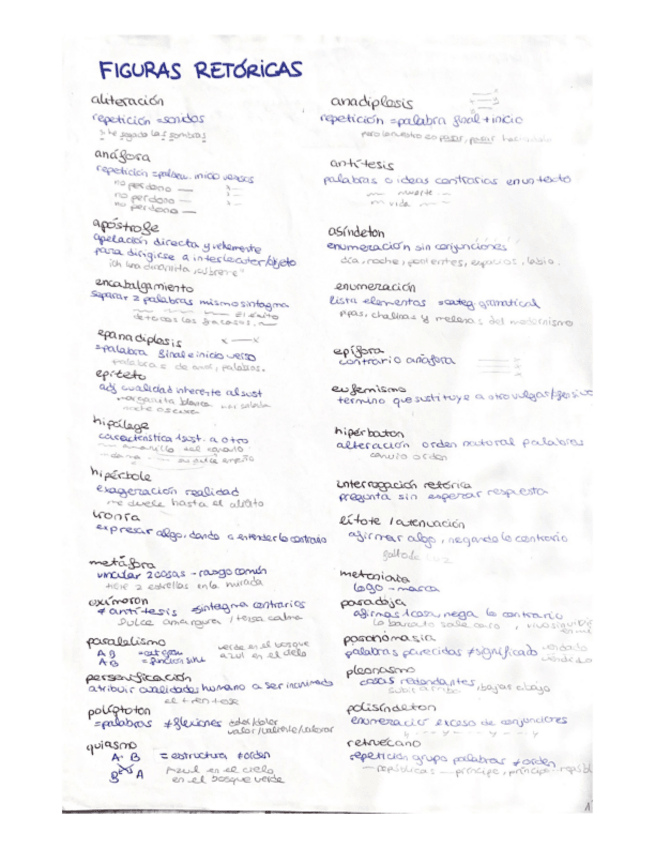 FIGURAS RETÓRICAS
aliteración
repetición = sonidos
anáfora
repetición = palabra inicio versos
no perdono
no perdono
no perdono
apóstrofe
apelación directa y vehemente
para dirigirse a interlocutor/objeto
encabalgamiento
separar 2 palabras mismo sintagma
epanadiplosis
= palabra final e inicio verso
palabras de amor, palabras.
epíteto
adj cualidad inherente al sust
noche oscura
hipálage
característica 1 sust. a otro
hipérbole
exageración realidad
me duele hasta el aliento
ironía
expresar algo, dando a entender lo contrario
metáfora
vincular 2 cosas - rasgo común
tiene 2 estrellas en la mirada
oxímoron
≠ antítesis sintagma contrarios
Dulce amargura / tensa calma
paralelismo
A B
A B
verde en el bosque
azul en el cielo
personificación
atribuir cualidades humano a ser inanimado
políptoton
= palabras ≠ flexiones
valor/valiente/valorar
quiasmo
A B
B A
= estructura ≠ orden
Azul en el cielo
en el bosque verde
anadiplosis
repetición = palabra final + inicio
antítesis
palabras o ideas contrarias en un texto
muerte
vida
asíndeton
enumeración sin conjunciones
enumeración
lista elementos = categ. gramatical
pipas, chalinas y melenas del modernismo
epífora
contrario anáfora
eufemismo
término que sustituye a otro vulgar/ofensivo
hipérbaton
alteración orden natural palabras
cambio orden
interrogación retórica
pregunta sin esperar respuesta
lítote / atenuación
afirmar algo, negando lo contrario
metonimia
logo - marca
paradoja
afirmas 1 cosa, nega lo contrario
lo barato sale caro
paronomasia
palabras parecidas ≠ significado
pleonasmo
cosas redundantes
subir arriba, bajar abajo
polisíndeton
enumeración exceso de conjunciones
retruécano
repetición grupo palabras ≠ orden